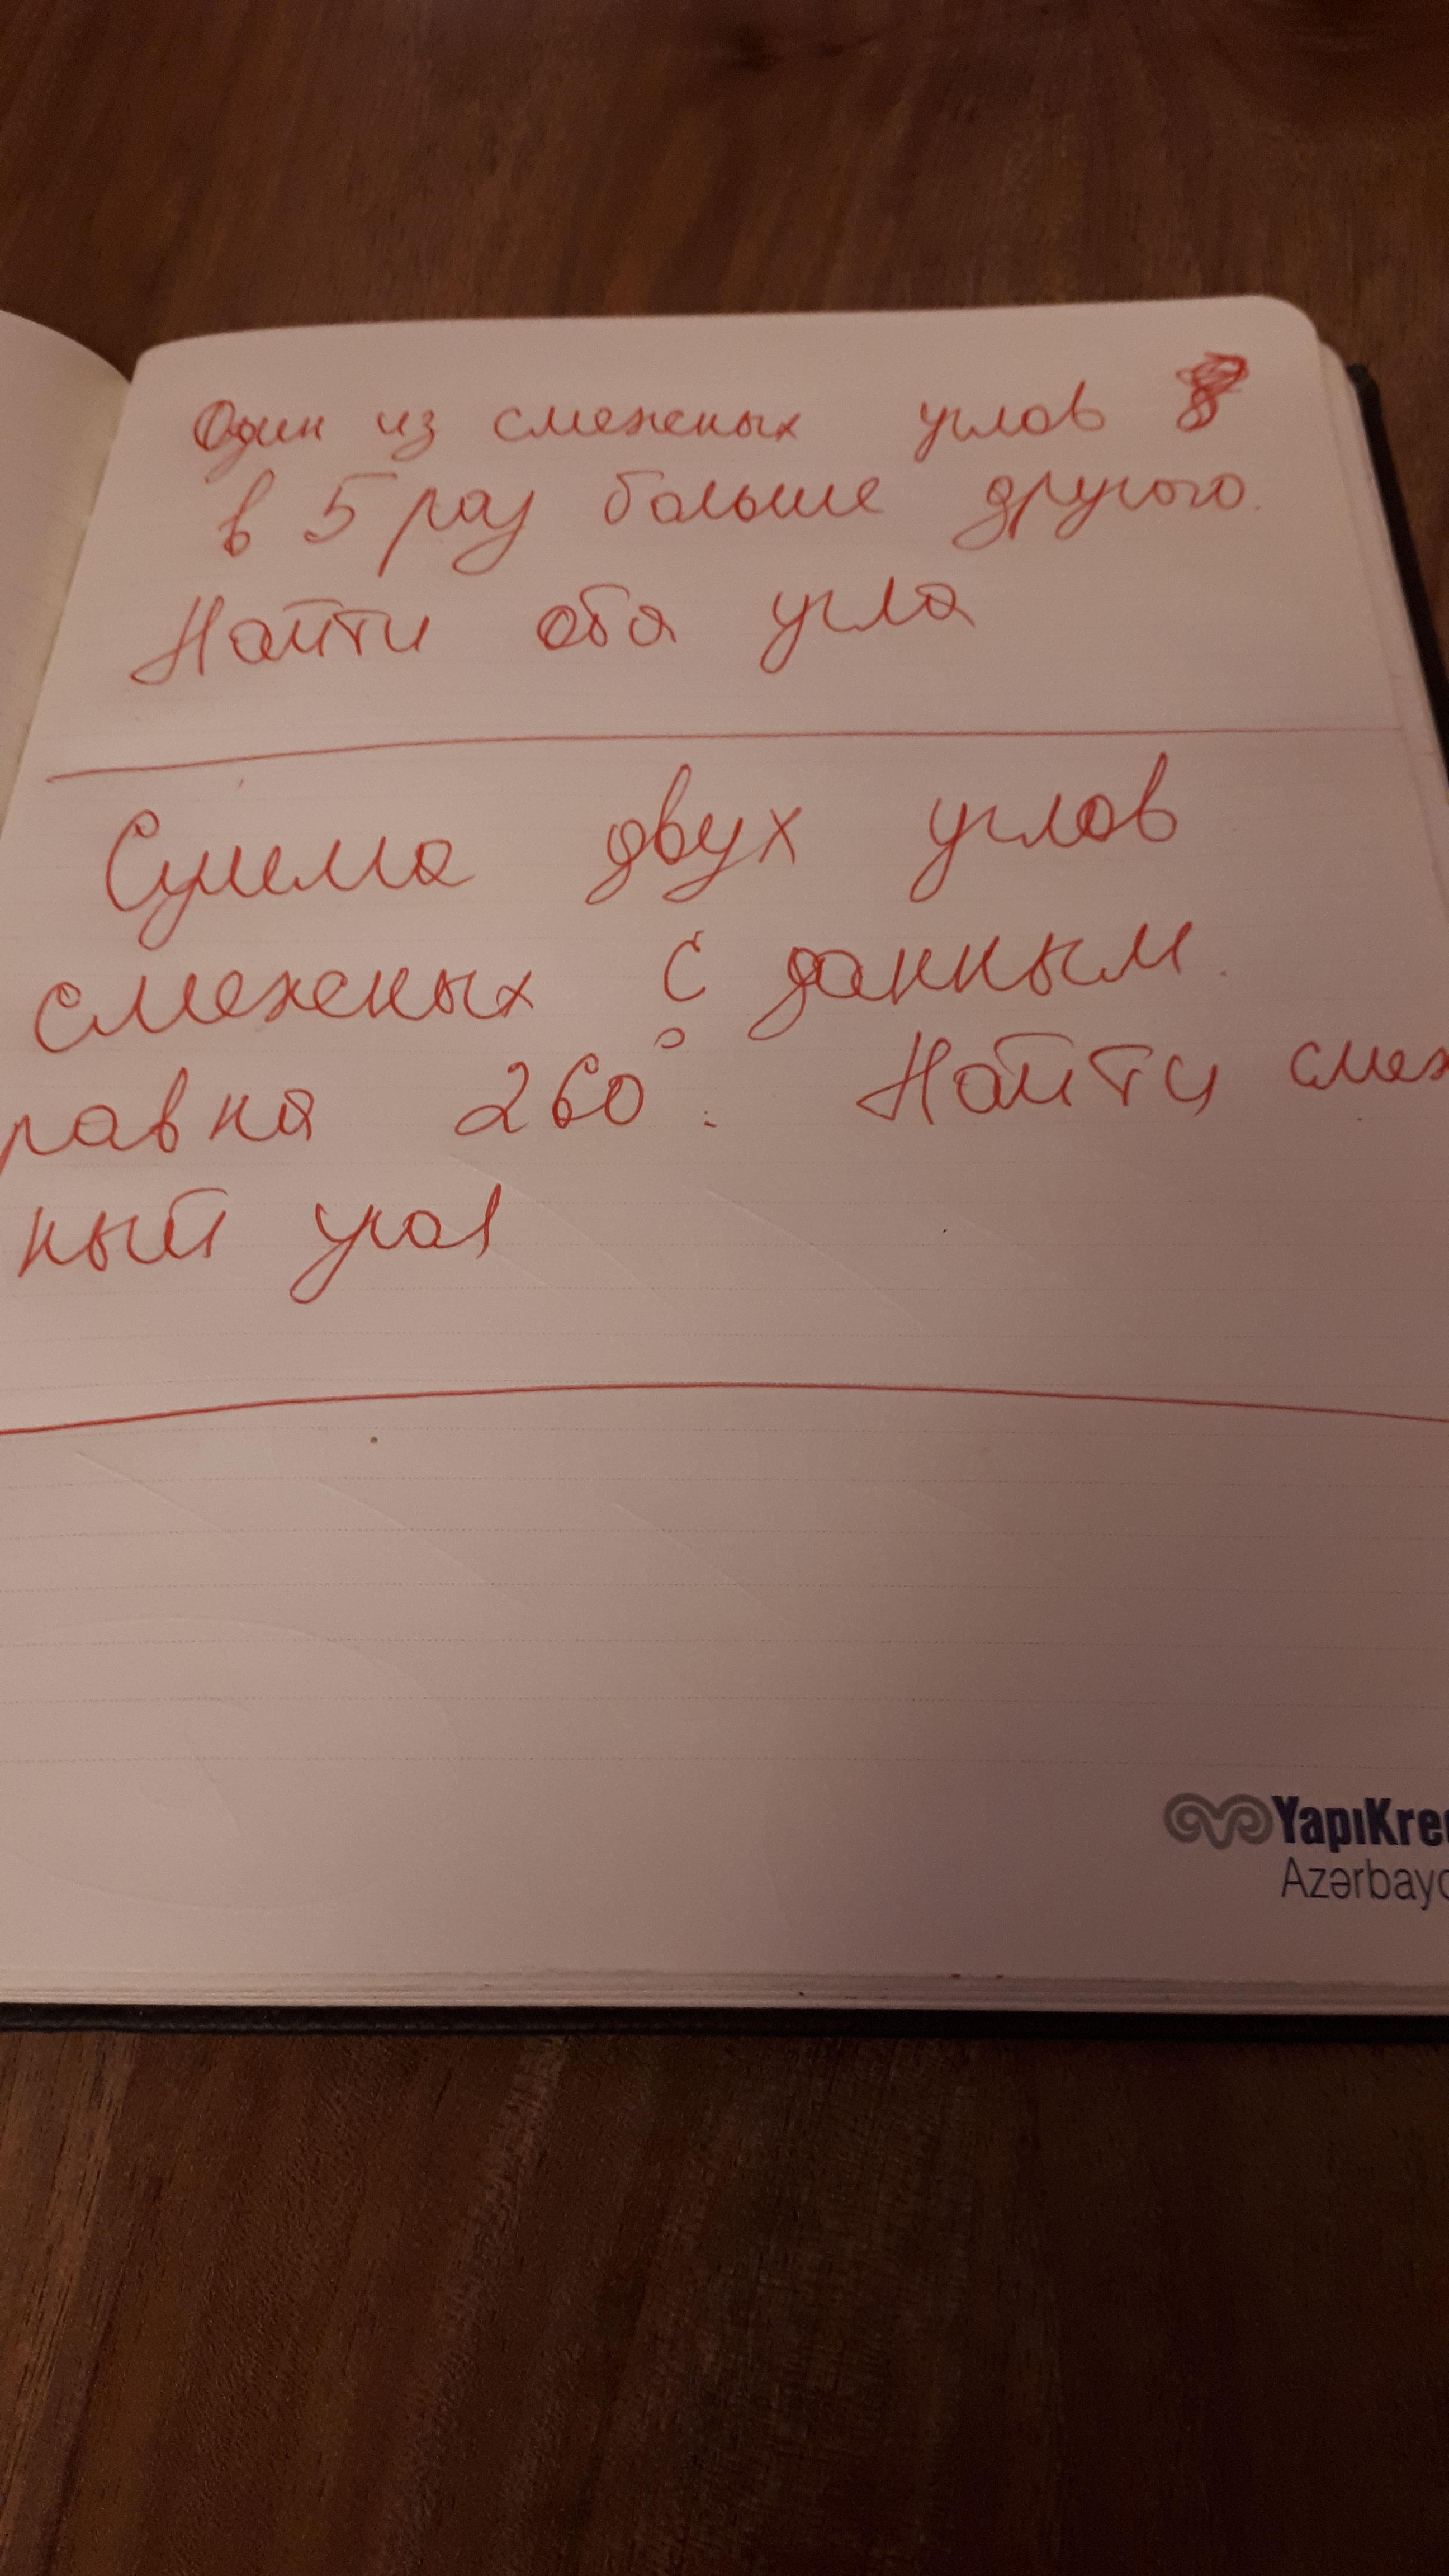 Один из смежных углов
в 5 раз больше другого.
Найти оба угла
Сумма двух углов
смежных с данным
равна 260°. Найти смеж
ный угол
YapıKre
Azərbayc